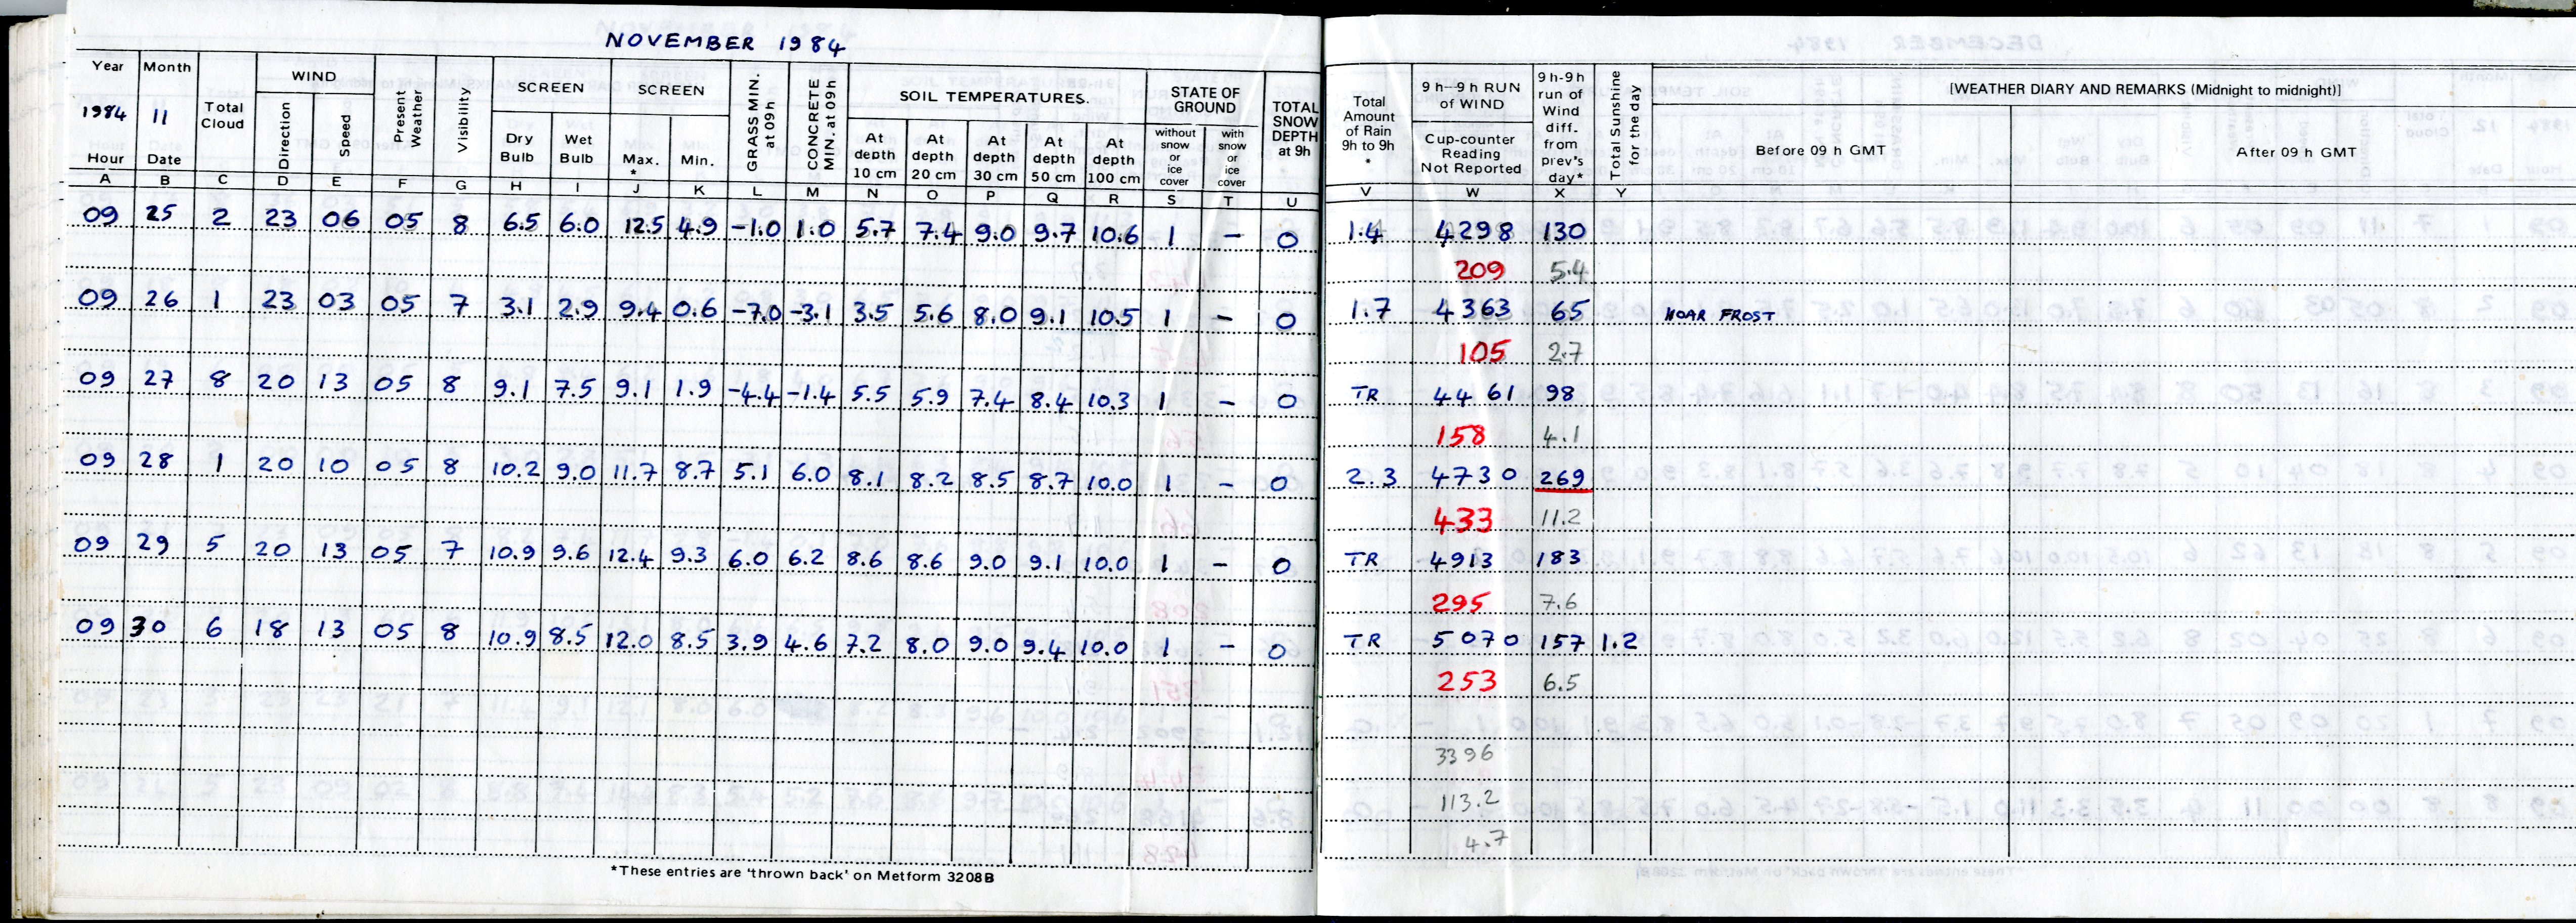 NOVEMBER 1984
Year Month Total Cloud WIND Present Weather Visibility SCREEN SCREEN GRASS MIN. at 09h CONCRETE MIN. at 09h SOIL TEMPERATURES. STATE OF GROUND TOTAL SNOW DEPTH at 9h Total Amount of Rain 9h to 9h * 9 h–9 h RUN of WIND 9 h-9 h run of Wind diff. from prev's day* Total Sunshine for the day [WEATHER DIARY AND REMARKS (Midnight to midnight)]
1984 11 Direction Speed Dry Bulb Wet Bulb Max. * Min. At depth 10 cm At depth 20 cm At depth 30 cm At depth 50 cm At depth 100 cm without snow or ice cover with snow or ice cover Cup-counter Reading Not Reported Before 09 h GMT After 09 h GMT
Hour Date
A B C D E F G H I J K L M N O P Q R S T U V W X Y
09 25 2 23 06 05 8 6.5 6.0 12.5 4.9 -1.0 1.0 5.7 7.4 9.0 9.7 10.6 1 - 0 1.4 4298 130
209 5.4
09 26 1 23 03 05 7 3.1 2.9 9.4 0.6 -7.0 -3.1 3.5 5.6 8.0 9.1 10.5 1 - 0 1.7 4363 65 HOAR FROST
105 2.7
09 27 8 20 13 05 8 9.1 7.5 9.1 1.9 -4.4 -1.4 5.5 5.9 7.4 8.4 10.3 1 - 0 TR 4461 98
158 4.1
09 28 1 20 10 05 8 10.2 9.0 11.7 8.7 5.1 6.0 8.1 8.2 8.5 8.7 10.0 1 - 0 2.3 4730 269
433 11.2
09 29 5 20 13 05 7 10.9 9.6 12.4 9.3 6.0 6.2 8.6 8.6 9.0 9.1 10.0 1 - 0 TR 4913 183
295 7.6
09 30 6 18 13 05 8 10.9 8.5 12.0 8.5 3.9 4.6 7.2 8.0 9.0 9.4 10.0 1 - 0 TR 5070 157 1.2
253 6.5
3396
113.2
4.7
*These entries are 'thrown back' on Metform 3208B